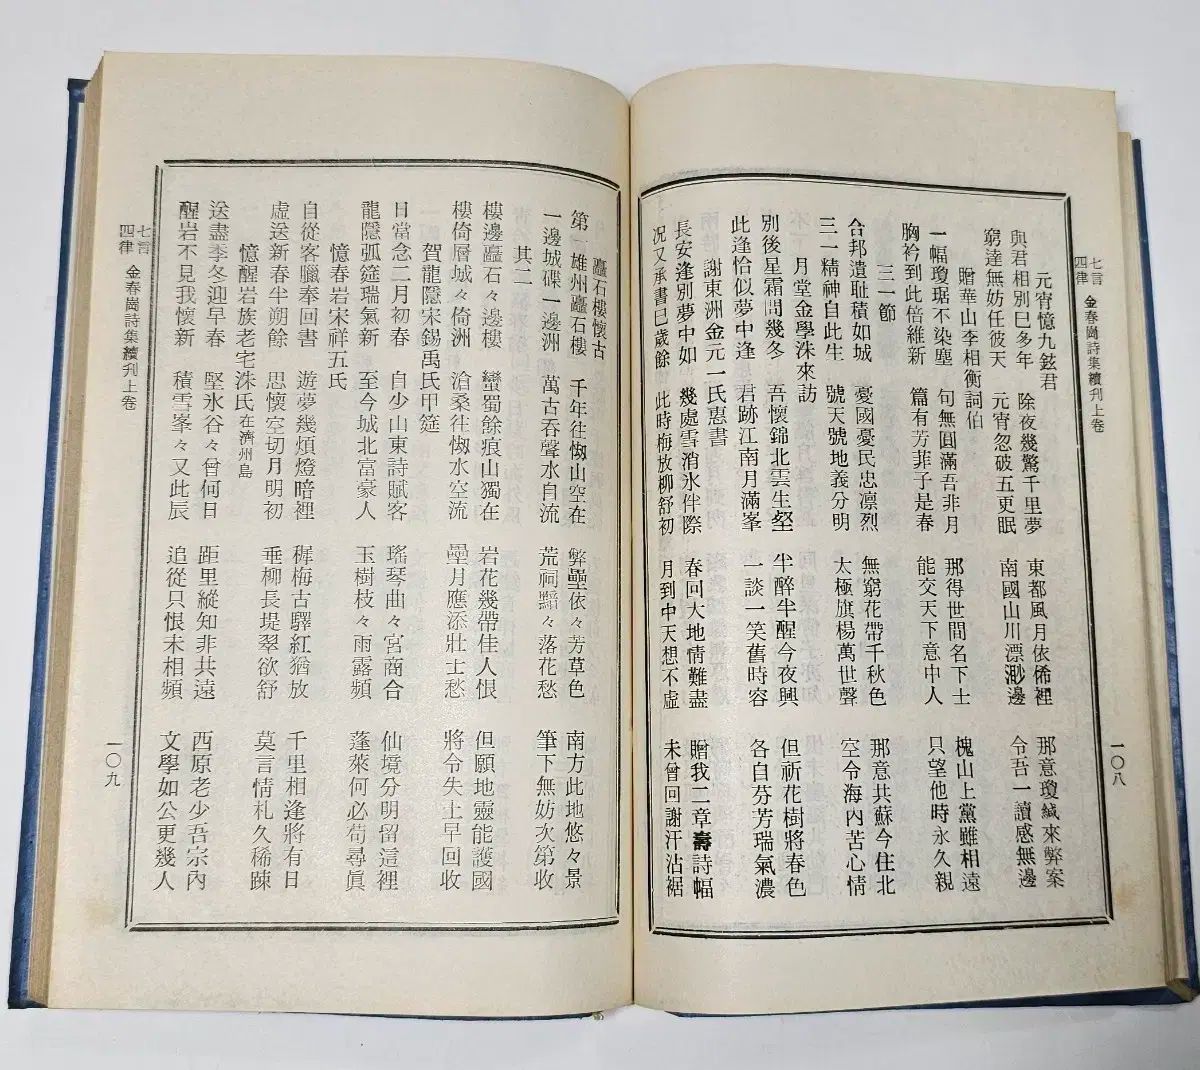 七言四律 金春崗詩集續刋上卷 一〇八
元宵憶九鉉君
與君相別巳多年 除夜幾驚千里夢 東都風月依俙裡 那意瓊緘來弊案
窮達無妨任彼天 元宵忽破五更眠 南國山川漂渺邊 令吾一讀感無邊
贈華山李相衡詞伯
一幅瓊琚不染塵 句無圓滿吾非月 那得世間名下士 槐山上黨雖相遠
胸衿到此倍維新 篇有芳菲子是春 能交天下意中人 只望他時永久親
三一節
合邦遺耻積如城 憂國憂民忠凛烈 無窮花帶千秋色 那意共蘇今住北
三一精神自此生 號天號地義分明 太極旗楊萬世聲 空令海內苦心情
月堂金學洙來訪
別後星霜問幾冬 吾懷錦北雲生壑 半醉半醒今夜興 但祈花樹將春色
此逢恰似夢中逢 君跡江南月滿峯 一談一笑舊時容 各自芬芳瑞氣濃
謝東洲金元一氏惠書
長安逢別夢中如 幾處雪消氷伴際 春回大地情難盡 贈我二章壽詩幅
况又承書巳歲餘 此時梅放柳舒初 月到中天想不虛 未曾回謝汗沾裾
矗石樓懷古
第一雄州矗石樓 千年往刼山空在 弊壘依々芳草色 南方此地悠々景
一邊城碟一邊洲 萬古吞聲水自流 荒祠黯々落花愁 筆下無妨次第收
其二
樓邊矗石々邊樓 蠻蜀餘痕山獨在 岩花幾帶佳人恨 但願地靈能護國
樓倚層城々倚洲 滄桑往刼水空流 壘月應添壯士愁 將令失土早回收
賀龍隱宋錫禹氏甲筵
日當念二月初春 自少山東詩賦客 瑤琴曲々宮商合 仙境分明留這裡
龍隱弧筵瑞氣新 至今城北富豪人 玉樹枝々雨露頻 蓬萊何必苟尋眞
憶春岩宋祥五氏
自從客臘奉回書 遊夢幾煩燈暗裡 稺梅古驛紅猶放 千里相逢將有日
虛送新春半朔餘 思懷空切月明初 垂柳長堤翠欲舒 莫言情札久稀踈
憶醒岩族老宅洙氏 在濟州島
送盡季冬迎早春 堅氷谷々曾何日 距里縱知非共遠 西原老少吾宗內
醒岩不見我懷新 積雪峯々又此辰 追從只恨未相頻 文學如公更幾人
七言四律 金春崗詩集續刋上卷 一〇九